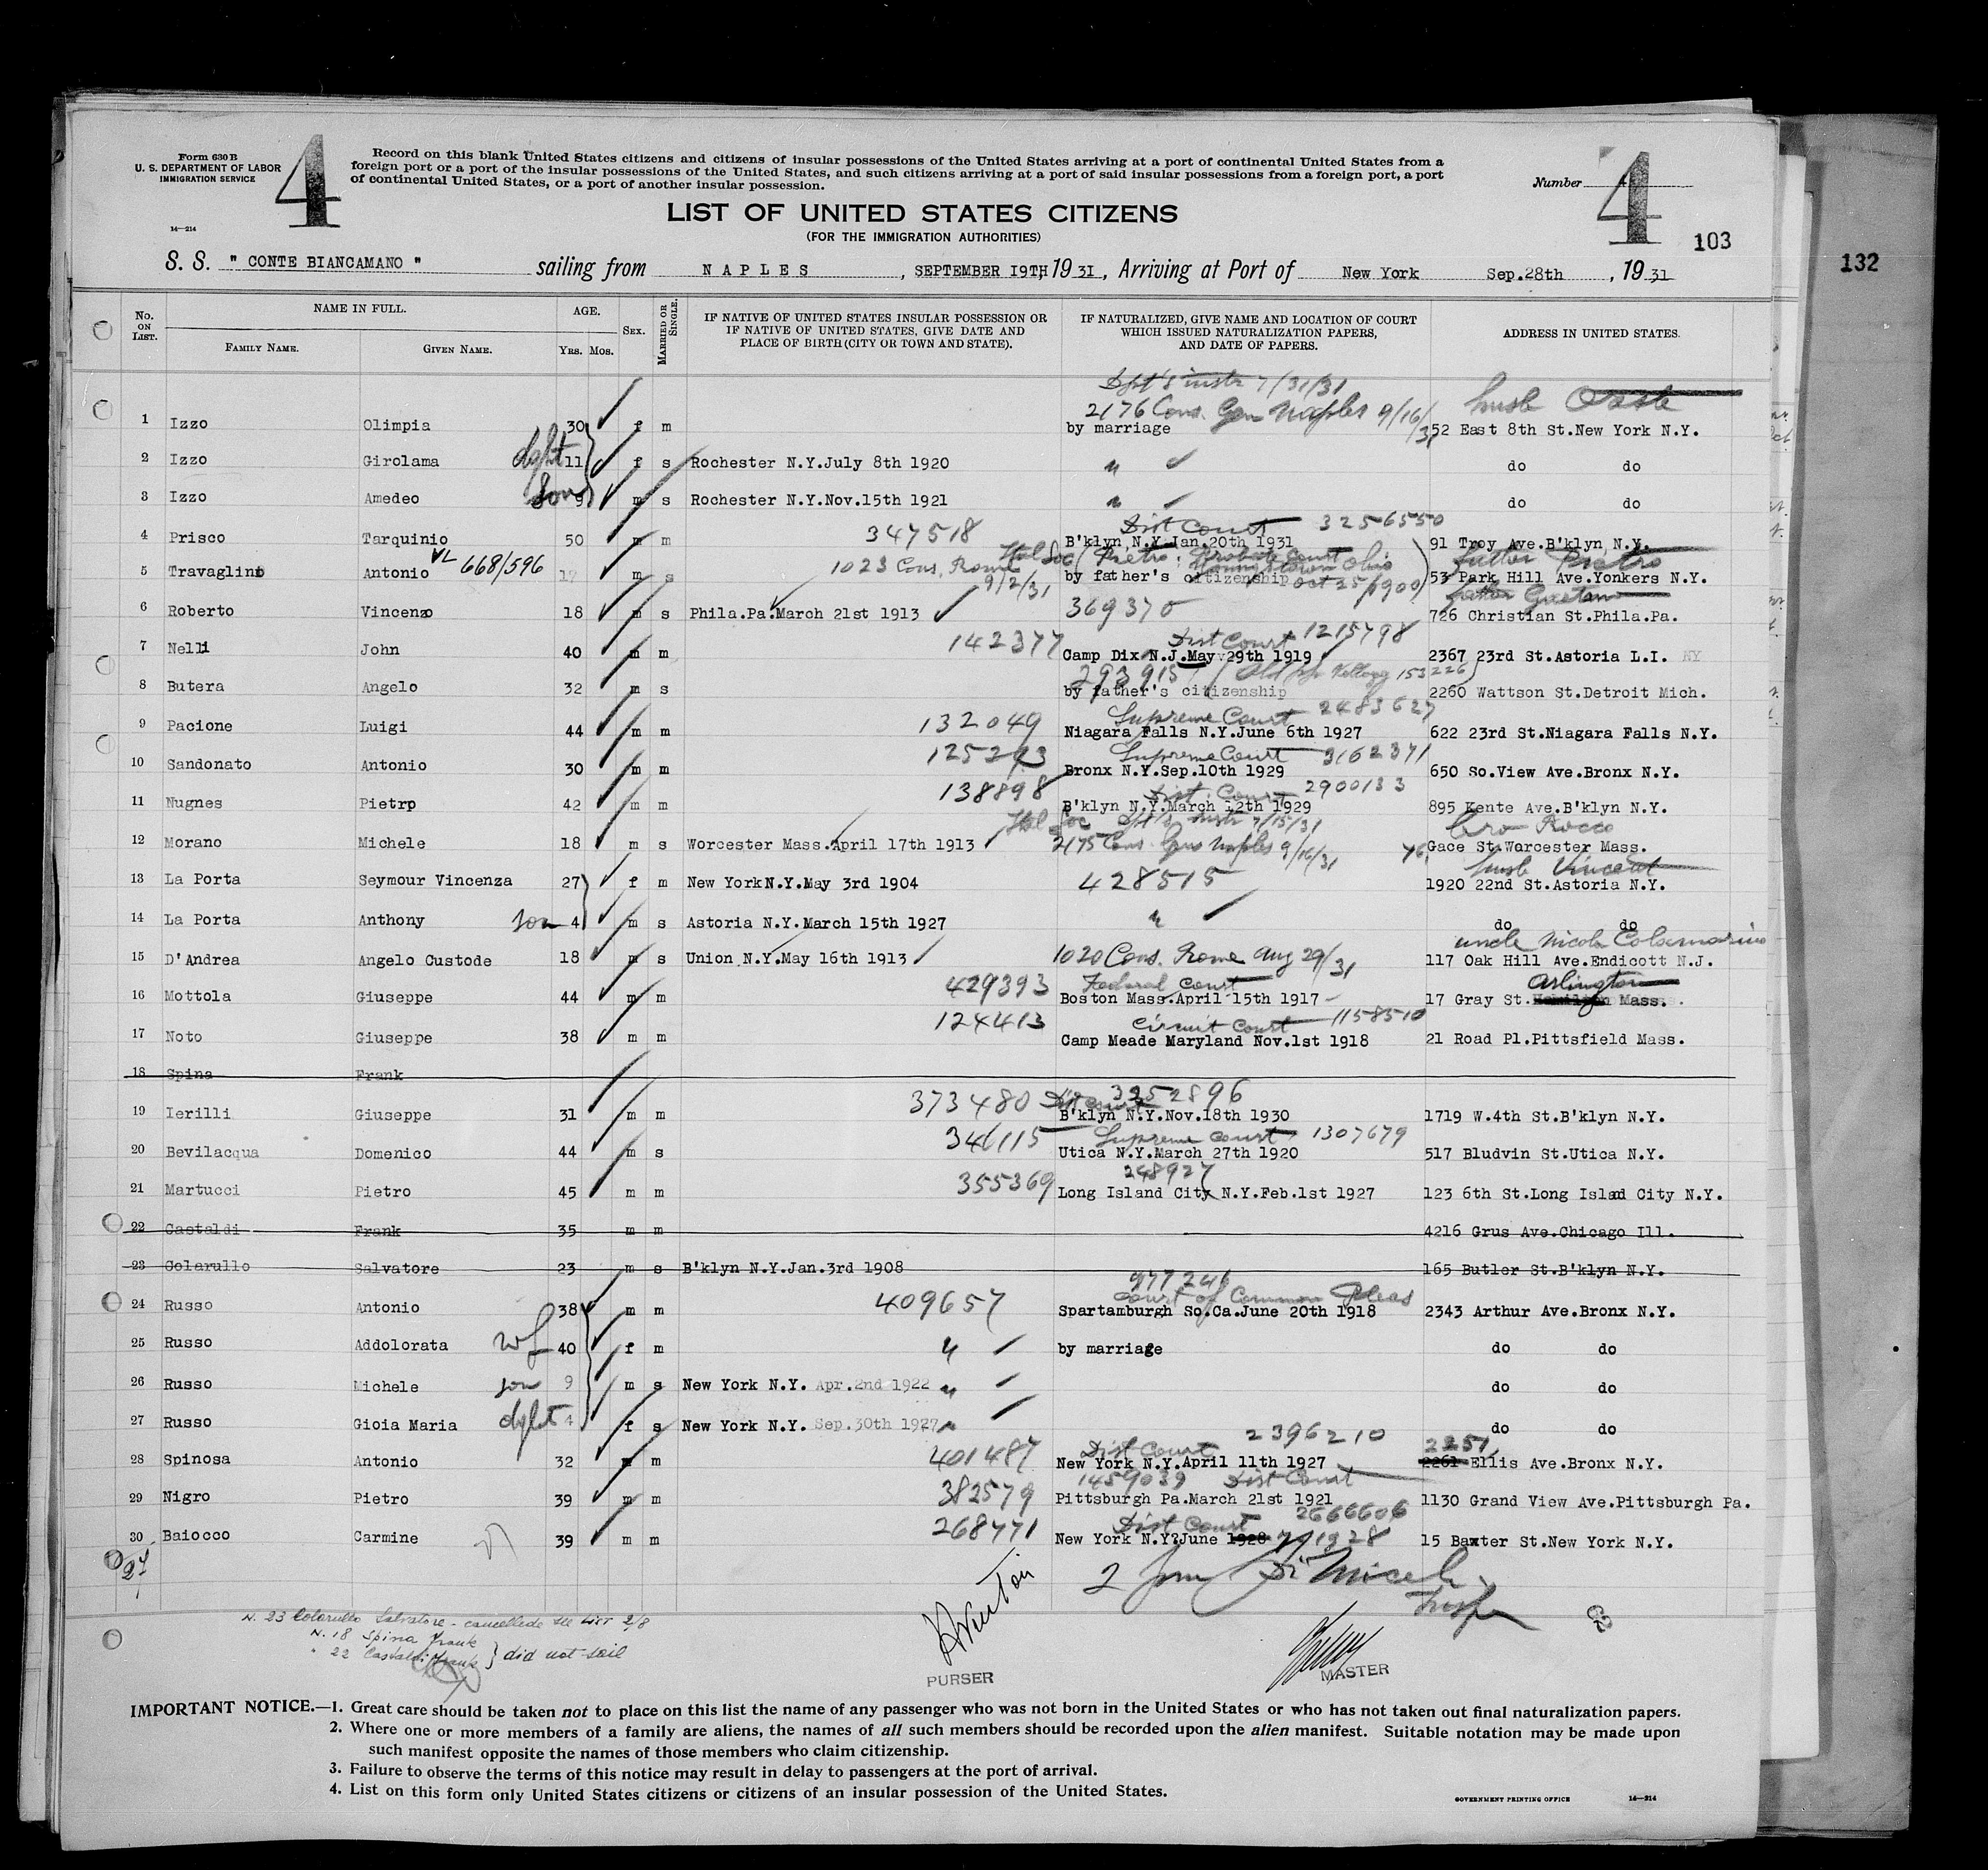 Form 630 B
U. S. DEPARTMENT OF LABOR
IMMIGRATION SERVICE
14—214
4
Record on this blank United States citizens and citizens of insular possessions of the United States arriving at a port of continental United States from a
foreign port or a port of the insular possessions of the United States, and such citizens arriving at a port of said insular possessions from a foreign port, a port
of continental United States, or a port of another insular possession.
Number 4
4
103
132
LIST OF UNITED STATES CITIZENS
(FOR THE IMMIGRATION AUTHORITIES)
S. S. " CONTE BIANCAMANO " sailing from NAPLES, SEPTEMBER 19TH, 19 31, Arriving at Port of New York Sep.28th, 19 31
No. ON LIST. NAME IN FULL. FAMILY NAME. GIVEN NAME. AGE. YRS. MOS. SEX. MARRIED OR SINGLE. IF NATIVE OF UNITED STATES INSULAR POSSESSION OR IF NATIVE OF UNITED STATES, GIVE DATE AND PLACE OF BIRTH (CITY OR TOWN AND STATE). IF NATURALIZED, GIVE NAME AND LOCATION OF COURT WHICH ISSUED NATURALIZATION PAPERS, AND DATE OF PAPERS. ADDRESS IN UNITED STATES.
Dpt's instr 7/31/31
2176 Cons. Gen Naples 9/16/31 husb
1 Izzo Olimpia 30 f m by marriage 352 East 8th St.New York N.Y.
2 Izzo Girolama dght 11 f s Rochester N.Y.July 8th 1920 " do do
3 Izzo Amedeo Son 9 m s Rochester N.Y.Nov.15th 1921 " do do
347518 Dist Court 3256550
4 Prisco Tarquinio 50 m m B'klyn N.Y.Jan.20th 1931 91 Troy Ave.B'klyn N.Y.
VL 668/596 1023 Cons. Rome 9/2/31 (Pietro: Probate Court Youngstown Ohio Oct 25/1900) father Pietro
5 Travaglini Antonio 17 m s by father's citizenship 53 Park Hill Ave.Yonkers N.Y.
father Gaetano
6 Roberto Vincenzo 18 m s Phila.Pa.March 21st 1913 369370 726 Christian St.Phila.Pa.
142377 Dist Court 1215798
7 Nelli John 40 m m Camp Dix N.J.May 29th 1919 2367 23rd St.Astoria L.I. NY
293915 Kellogg 153226
8 Butera Angelo 32 m s by father's citizenship 2260 Wattson St.Detroit Mich.
132049 Supreme Court 2483627
9 Pacione Luigi 44 m m Niagara Falls N.Y.June 6th 1927 622 23rd St.Niagara Falls N.Y.
125243 Supreme Court 3162371
10 Sandonato Antonio 30 m m Bronx N.Y.Sep.10th 1929 650 So.View Ave.Bronx N.Y.
138898 Dist. Court 2900133
11 Nugnes Pietrp 42 m m B'klyn N.Y.March 12th 1929 895 Kente Ave.B'klyn N.Y.
Dpt's instr 7/15/31 bro Rocco
12 Morano Michele 18 m s Worcester Mass.April 17th 1913 2175 Cons. Gens Naples 9/16/31 Gace St.Worcester Mass.
husb Vincent
13 La Porta Seymour Vincenza 27 f m New York N.Y.May 3rd 1904 428515 1920 22nd St.Astoria N.Y.
14 La Porta Anthony son 4 m s Astoria N.Y.March 15th 1927 " do do
uncle Nicola Colamarino
15 D'Andrea Angelo Custode 18 m s Union N.Y.May 16th 1913 1020 Cons. Rome Aug 29/31 117 Oak Hill Ave.Endicott N.J.
429393 Federal Court Arlington
16 Mottola Giuseppe 44 m m Boston Mass.April 15th 1917 17 Gray St. Mass.
124413 Circuit Court 1158510
17 Noto Giuseppe 38 m m Camp Meade Maryland Nov.1st 1918 21 Road Pl.Pittsfield Mass.
18 Spina Frank
373480 Dist Court 3352896
19 Ierilli Giuseppe 31 m m B'klyn N.Y.Nov.18th 1930 1719 W.4th St.B'klyn N.Y.
346115 Supreme Court 1307679
20 Bevilacqua Domenico 44 m s Utica N.Y.March 27th 1920 517 Bludvin St.Utica N.Y.
355369 248927
21 Martucci Pietro 45 m m Long Island City N.Y.Feb.1st 1927 123 6th St.Long Islad City N.Y.
22 Castaldi Frank 35 m m 4216 Grus Ave.Chicago Ill.
23 Colarullo Salvatore 23 m s B'klyn N.Y.Jan.3rd 1908 165 Butler St.B'klyn N.Y.
409657 977246 Court of Common Pleas
24 Russo Antonio 38 m m Spartamburgh So.Ca.June 20th 1918 2343 Arthur Ave.Bronx N.Y.
25 Russo Addolorata wf 40 f m " by marriage do do
26 Russo Michele son 9 m s New York N.Y. Apr.2nd 1922 " do do
27 Russo Gioia Maria dght 4 f s New York N.Y. Sep.30th 1927 " do do
401487 Dist Court 2396210 2251
28 Spinosa Antonio 32 m m New York N.Y.April 11th 1927 2261 Ellis Ave.Bronx N.Y.
382579 1459039 Dist Court
29 Nigro Pietro 39 m m Pittsburgh Pa.March 21st 1921 1130 Grand View Ave.Pittsburgh Pa.
268771 Dist Court 2666606
30 Baiocco Carmine 39 m m New York N.Y.June 1928 1928 15 Baxter St.New York N.Y.
27
N. 23 Colarullo Salvatore - cancelled see List 2/8
N. 18 Spina Frank
" 22 Castaldi Frank } did not sail
PURSER
MASTER
IMPORTANT NOTICE.—1. Great care should be taken not to place on this list the name of any passenger who was not born in the United States or who has not taken out final naturalization papers.
2. Where one or more members of a family are aliens, the names of all such members should be recorded upon the alien manifest. Suitable notation may be made upon
such manifest opposite the names of those members who claim citizenship.
3. Failure to observe the terms of this notice may result in delay to passengers at the port of arrival.
4. List on this form only United States citizens or citizens of an insular possession of the United States.
GOVERNMENT PRINTING OFFICE 14—214